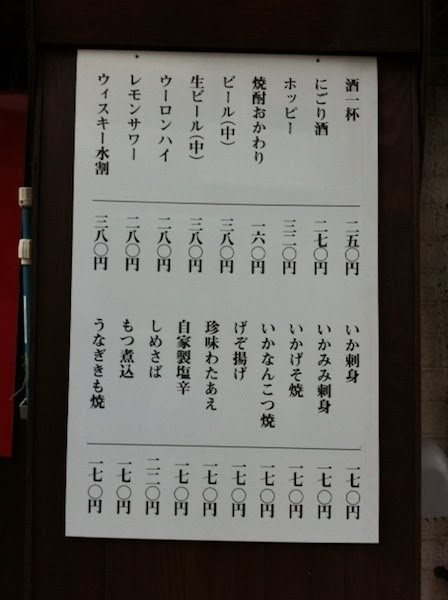 酒一杯 二五〇円
にごり酒 二七〇円
ホッピー 三二〇円
焼酎おかわり 一六〇円
ビール(中) 三八〇円
生ビール(中) 三八〇円
ウーロンハイ 二八〇円
レモンサワー 二八〇円
ウィスキー水割 三八〇円
いか刺身 一七〇円
いかみみ刺身 一七〇円
いかげそ焼 一七〇円
いかなんこつ焼 一七〇円
げぞ揚げ 一七〇円
珍味わたあえ 一七〇円
自家製塩辛 一七〇円
しめさば 二二〇円
もつ煮込 一七〇円
うなぎきも焼 一七〇円